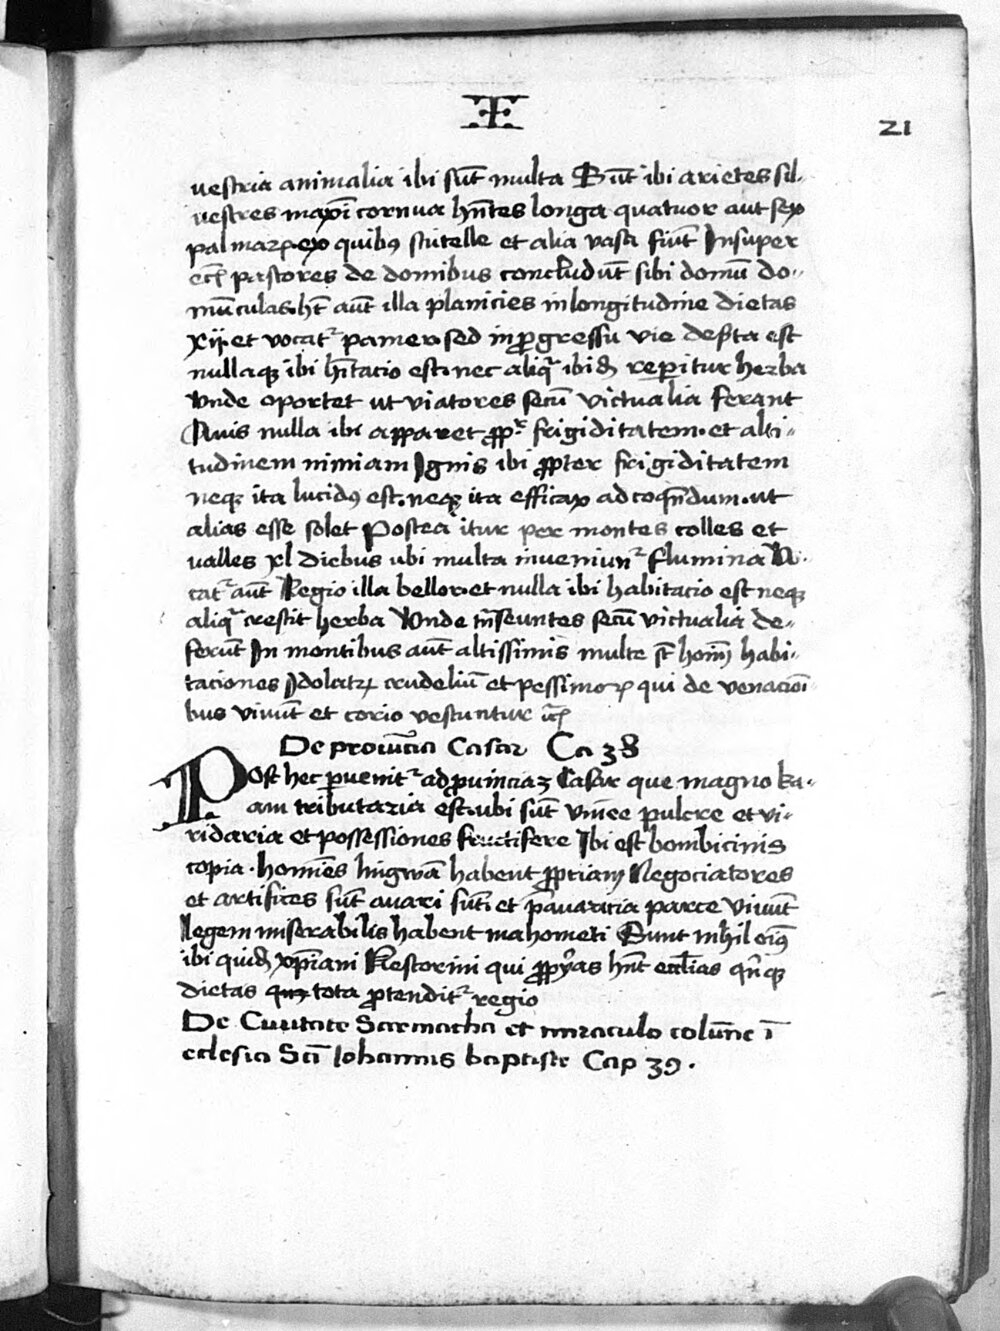 21
vestria animalia ibi sūt multa Sūt ibi arietes sil-
vestres maxi cornua hñtes longa quatuor aut sex
palmarꝝ ex quibꝰ scutelle et alia vasa fiūt Insuper
pastores de domibus concludūt sibi domū do-
mūculas hꝫ aūt illa planicies in longitudine dietas
xij et vocat᷑ pamer sed in ꝓgressu vie deserta est
nullaqꝫ ibi hitacio est nec aliqͣ ibidē reperitur herba
Vnde oportet ut viatores secū victualia ferant
Auis nulla ibi apparet ꝓpt᷑ frigiditatem et alti-
tudinem nimiam Ignis ibi ꝓpter frigiditatem
neqꝫ ita lucidꝰ est neqꝫ ita efficax ad coqñdum ut
alias esse solet Postea itur per montes colles et
valles xl diebus ubi multa inueniun᷑ flumina Vo-
cat᷑ aūt Regio illa bellor et nulla ibi habitacio est neqꝫ
aliqͣ crescit herba Vnde trāseuntes secū victualia de-
ferūt In montibus aūt altissimis multe sūt hoīm habi-
taciones Idolatrꝝ crudeliū et pessimoꝝ qui de venacōi
bus viuūt et corio vestuntur
De prouīcia Casar Ca 38
Post hec ꝑuenit᷑ ad ꝓuinciaꝫ Casar que magno ka-
am tributaria est ubi sūt vinee pulcre et vi-
ridaria et possessiones fructifere Ibi est bombicinis
copia homīes lingwā habent ꝓpriam Negociatores
et artifices sūt auari sūt et p̄ auaricia parce viuūt
legem miserabilis habent mahometi Sunt
ibi quidē xp̄iani Nestorini qui ꝓpͥas hñt ecclias qͥnqꝫ
dietas tota ꝓtendit᷑ regio
De Ciuitate Sarmacha et miraculo colūne ī
eclesia Scī Iohannis baptiste Cap 39.